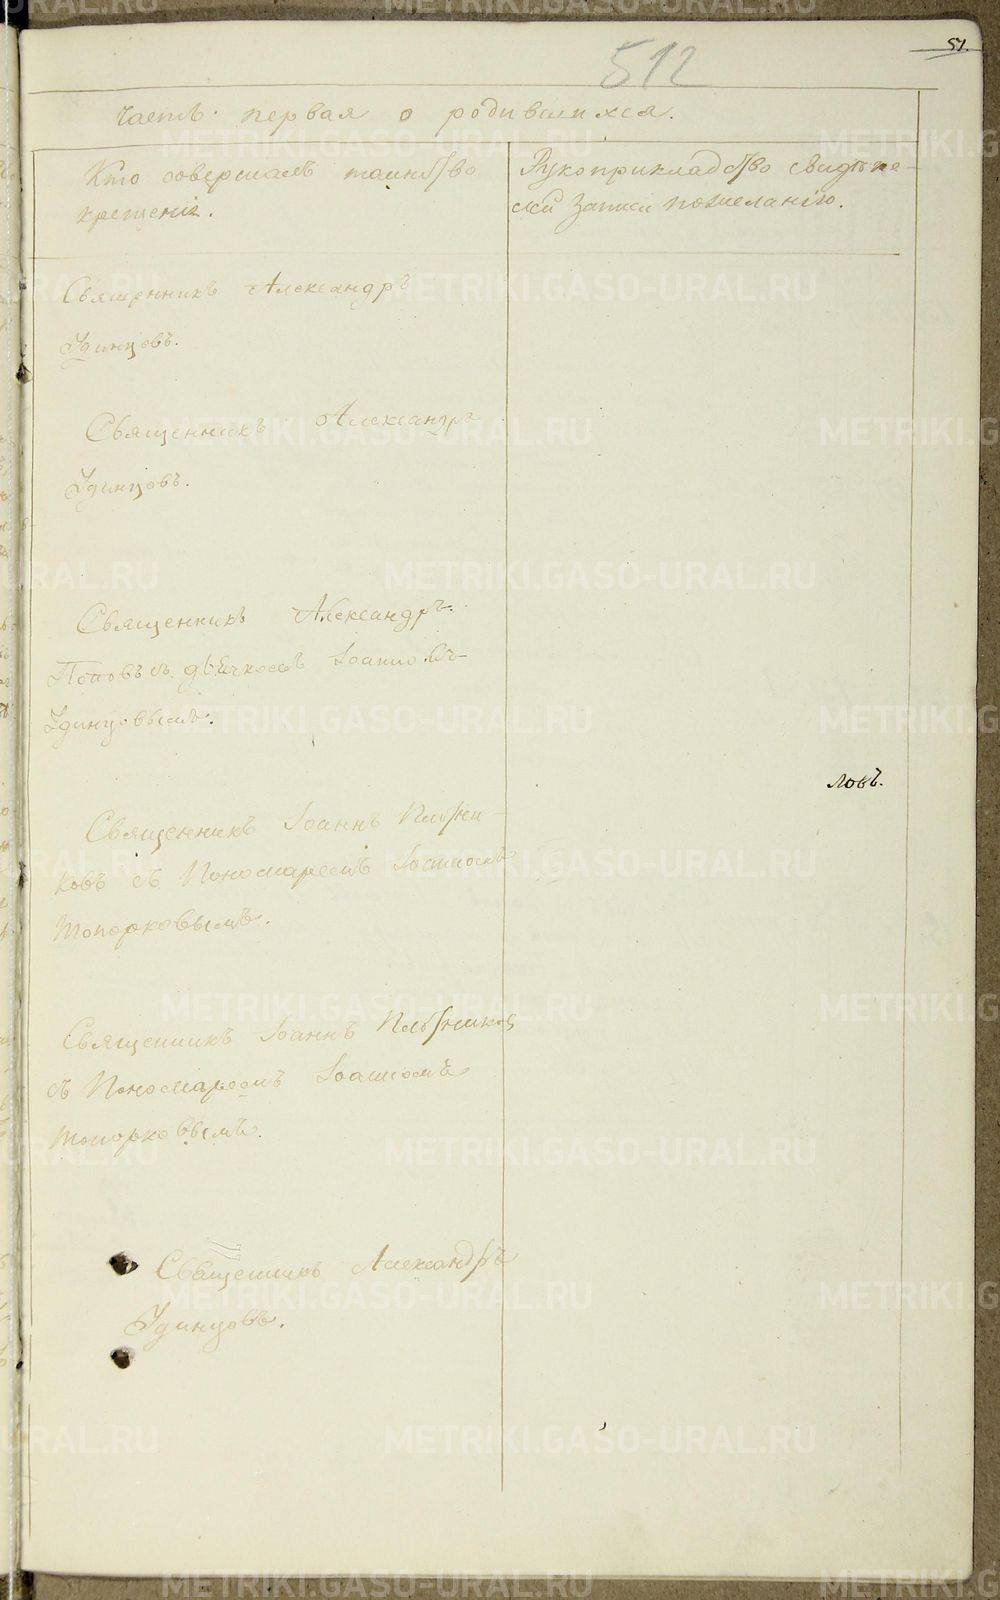 51.
512
Часть первая о родившихся.
Кто совершалъ таинство
крещенія.
Рукоприкладство свидѣте-
лей записи по желанію.
Священникъ Александръ
Удинцовъ.
Священникъ Александръ
Удинцовъ.
Священникъ Александръ
Поповъ съ дьячкомъ Іоанномъ
Удинцовымъ.
ловъ.
Священникъ Іоаннъ Плотни-
ковъ съ Пономаремъ Іоанномъ
Топорковымъ.
Священникъ Іоаннъ Плотниковъ
съ Пономаремъ Іоанномъ
Топорковымъ.
Священникъ Александръ
Удинцовъ.
METRIKI.GASO-URAL.RU